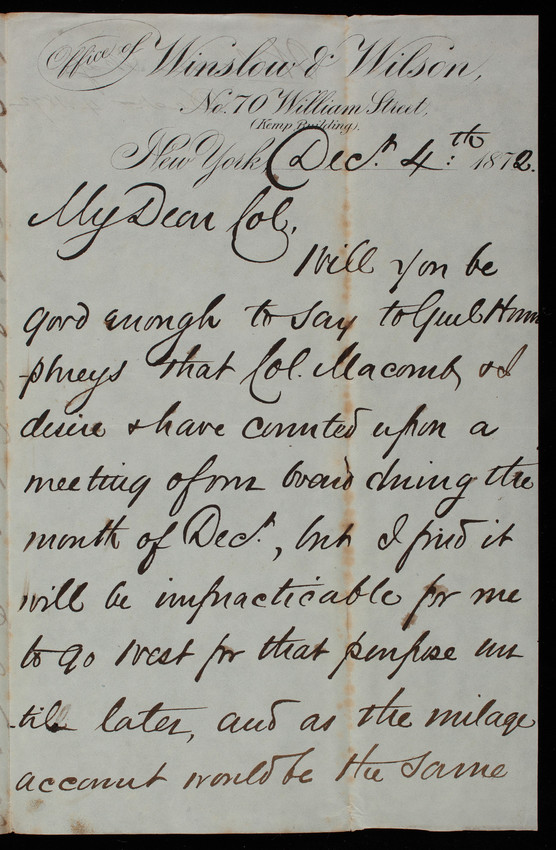 Office of Winslow & Wilson,
No. 70 William Street,
(Kemp Building).
New York, Decr. 4th: 1872.
My Dear Col.
Will you be
good enough to say to Genl Hum
-phreys that Col. Macomb & I
desire & have counted upon a
meeting of our board during the
month of Decr., but I find it
will be impracticable for me
to go West for that purpose un
-til later, and as the milage
account would be the same